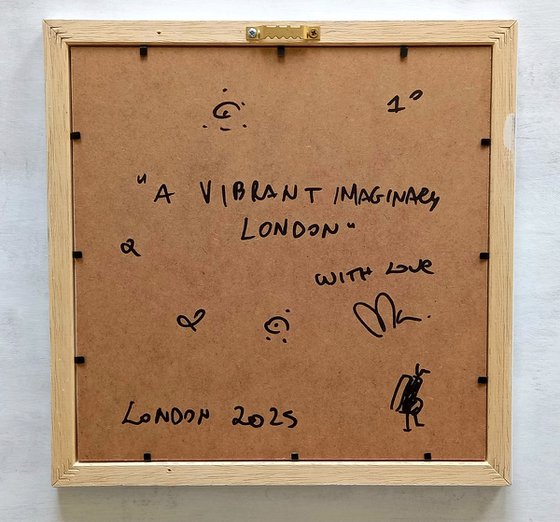 1°
"A VIBRANT IMAGINARY
LONDON"
WITH LOVE
LONDON 2025